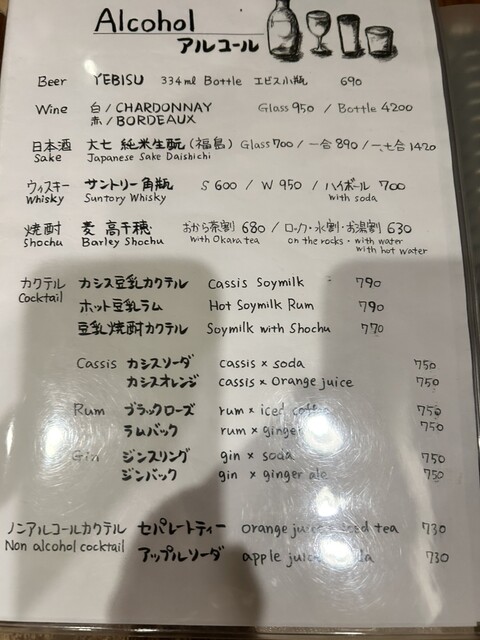 Alcohol
アルコール
Beer YEBISU 334ml Bottle エビス小瓶 690
Wine 白/CHARDONNAY Glass 950 / Bottle 4200
赤/BORDEAUX
日本酒 大七 純米生酛(福島) Glass 700 / 一合 890 / 一.七合 1420
Sake Japanese Sake Daishichi
ウィスキー サントリー角瓶 S 600 / W 950 / ハイボール 700
Whisky Suntory Whisky with soda
焼酎 麦 高千穂 おから茶割 680 / ロック・水割・お湯割 630
Shochu Barley Shochu with Okara tea on the rocks・with water
with hot water
カクテル カシス豆乳カクテル Cassis Soymilk 790
Cocktail
ホット豆乳ラム Hot Soymilk Rum 790
豆乳焼酎カクテル Soymilk with Shochu 770
Cassis カシスソーダ cassis × soda 750
カシスオレンジ cassis × Orange juice 750
Rum ブラックローズ rum × iced coffee 750
ラムバック rum × ginger 750
Gin ジンスリング gin × soda 750
ジンバック gin × ginger ale 750
ノンアルコールカクテル セパレートティー orange juice × iced tea 730
Non alcohol cocktail アップルソーダ apple juice 730